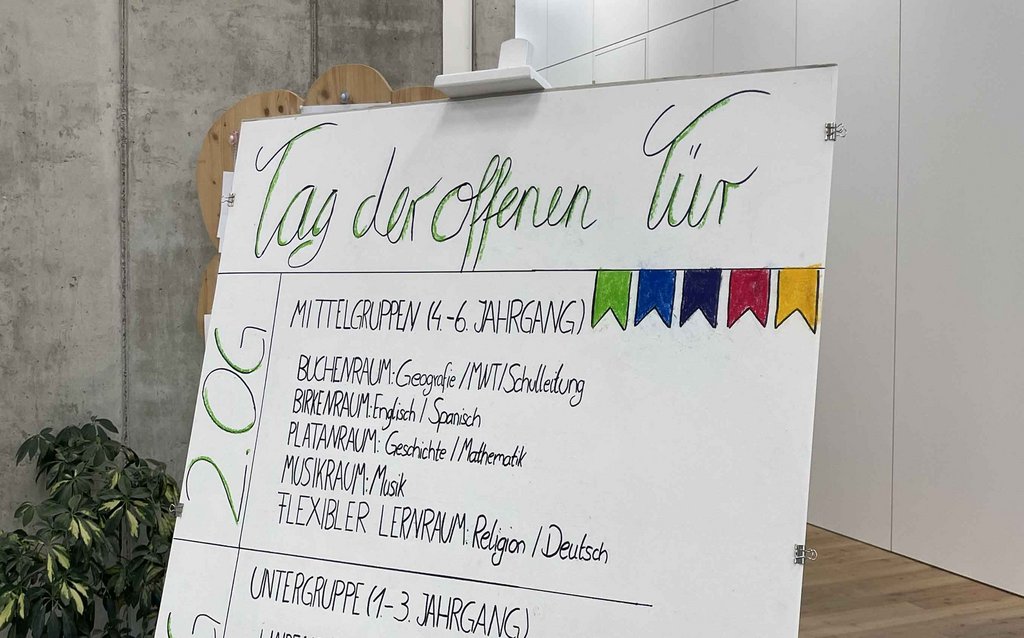 Tag der offenen Tür
2.OG
MITTELGRUPPEN (4.-6. JAHRGANG)
BUCHENRAUM: Geografie / MNT / Schulleitung
BIRKENRAUM: Englisch / Spanisch
PLATANRAUM: Geschichte / Mathematik
MUSIKRAUM: Musik
FLEXIBLER LERNRAUM: Religion / Deutsch
UNTERGRUPPE (1.-3. JAHRGANG)